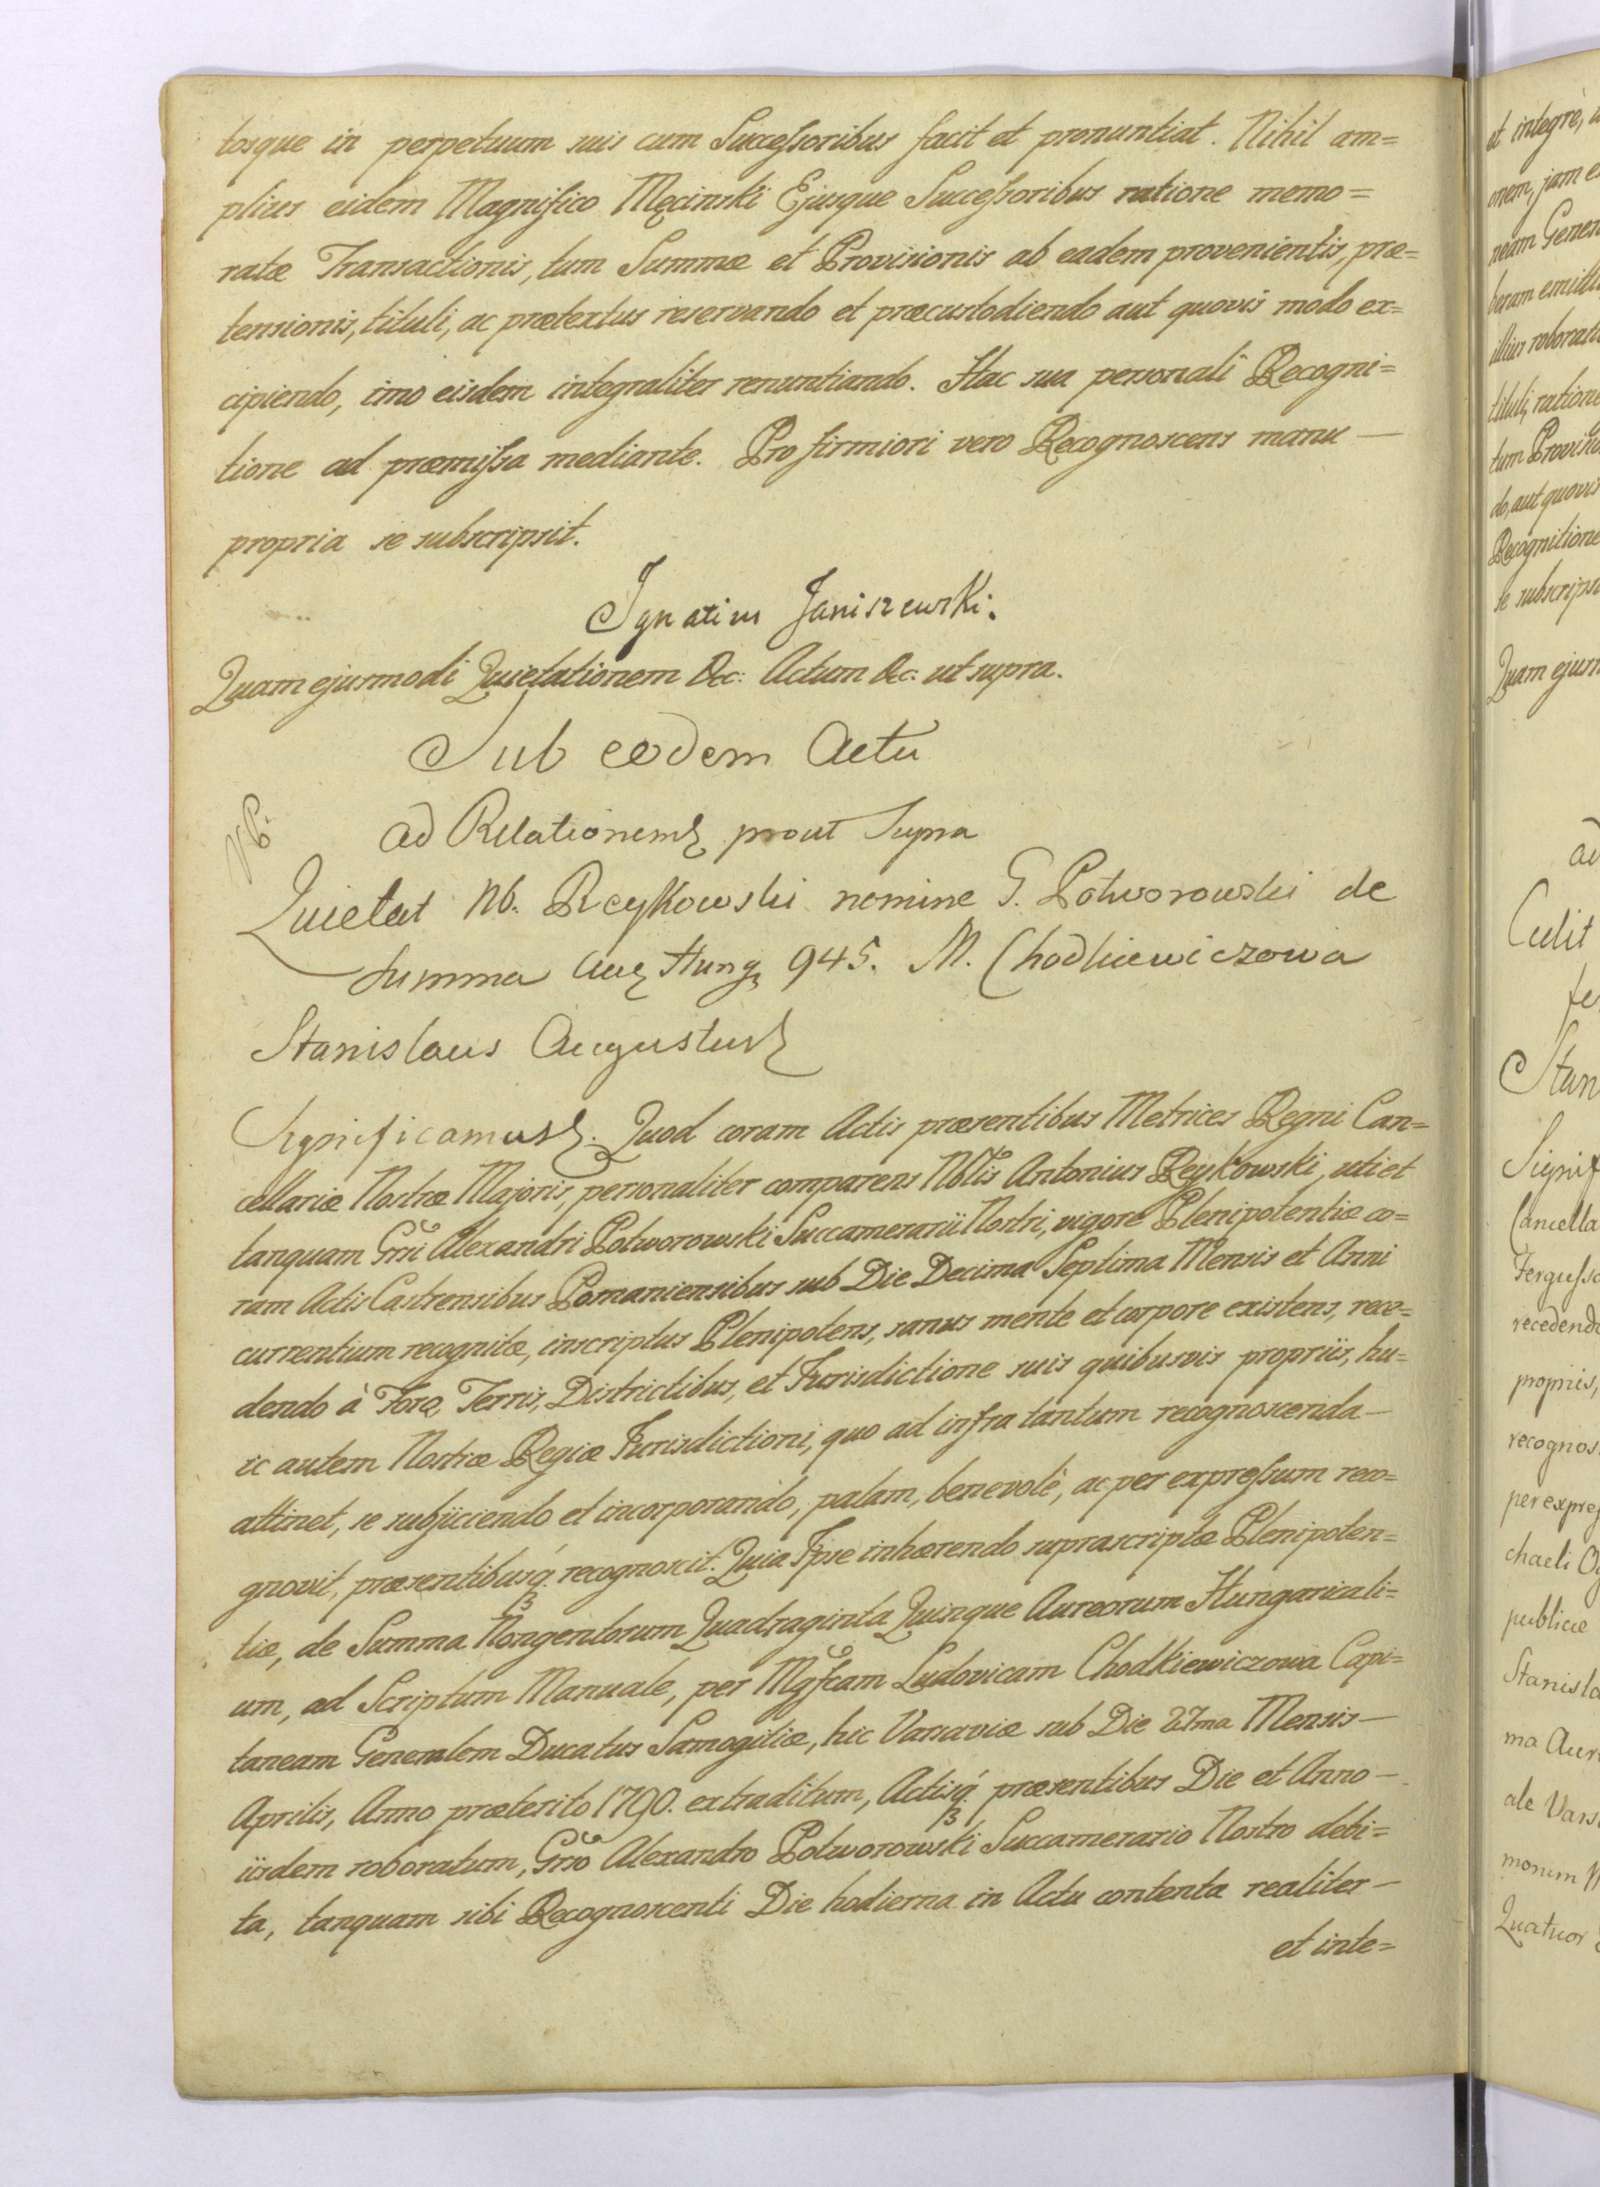 tosque in perpetuum suis cum Successoribus facit et pronuntiat. Nihil am=
plius eidem Magnifico Męcinski Ejusque Successoribus ratione memo=
ratæ Transactionis, tum Summæ et Provisionis ab eadem provenientis, præ=
tensionis, tituli, ac prætextus reservando et præcustodiendo aut quovis modo ex=
cipiendo, imo eisdem integraliter renuntiando. Hac sua personali Recogni=
tione ad præmissa mediante. Pro firmiori vero Recognoscens manu —
propria se subscripsit.
Ignatius Janiszewski.
Quam ejusmodi Quietationem &c: Actum &c: ut supra.
Sub eodem Actu
ad Relationem prout Supra
Quietat Nb. Reykowski nomine G. Potworowski de
Summa Aur Hung 945. M. Chodkiewiczowa
Stanislaus Augustus
Significamus. Quod coram Actis præsentibus Metrices Regni Can=
cellariæ Nostræ Majoris, personaliter comparens Nblis Antonius Reykowski, uti et
tanquam Grsi Alexandri Potworowski Succamerarii Nostri, vigore Plenipotentiæ co=
ram Actis Castrensibus Posnaniensibus sub Die Decima Septima Mensis et Anni
currentium recognitæ, inscriptus Plenipotens, sanus mente et corpore existens, rece=
dendo à Foro, Terris, Districtibus, et Jurisdictione suis quibusvis propriis, hu=
ic autem Nostræ Regiæ Jurisdictioni, quo ad infra tantum recognoscenda —
attinet, se subjiciendo et incorporando, palam, benevolè, ac per expressum reco=
gnovit, præsentibusq́ recognoscit. Quia Ipse inhærendo suprascriptæ Plenipoten=
tiæ, de Summa Nongentorum Quadraginta Quinque Aureorum Hungaricali=
um, ad Scriptum Manuale, per Mgfcam Ludovicam Chodkiewiczowa Capi=
taneam Generalem Ducatus Samogitiæ, hic Varsaviæ sub Die 27ma Mensis —
Aprilis, Anno præterito 1790. extraditum, Actisq́ præsentibus Die et Anno —
iisdem roboratum, Grso Alexandro Potworowski Succamerario Nostro debi=
ta, tanquam sibi Recognoscenti Die hodierna in Actu contenta realiter —
et inte=
et integrè,
onem, jam
tituli, ratione
tum Provisio
do, aut quovis
Recognitione
se subscrips
Quam ejusm
Stan
Signif
Cancella
recedend
propriis,
recognos
per expres
chaeli Og
publicæ
Stanisla
ma Aur
ale Vars
Quatuor